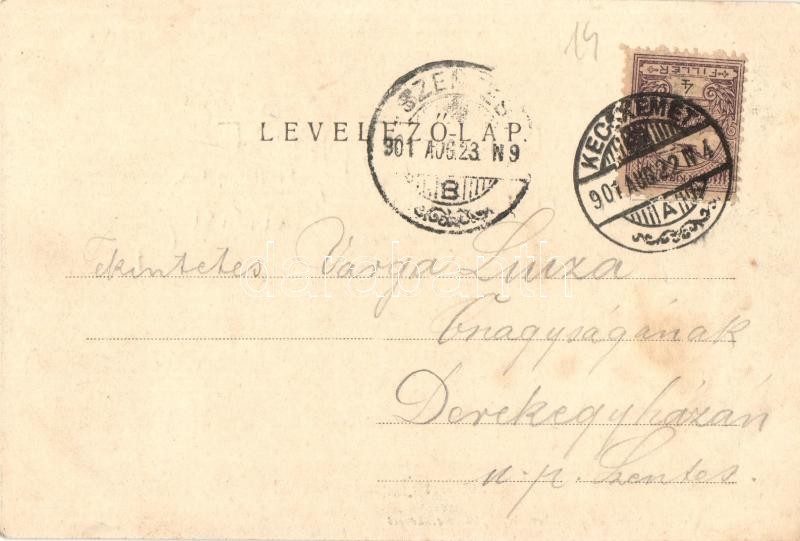 14
4
FILLÉR
LEVELEZŐ-LAP.
SZENTES
901 AUG. 23. N 9
B
KECSKEMÉT
901 AUG 22 N 4
A
Tekintetes Varga Luiza
Őnagyságának
Derekegyházán
u. p. Szentes.
darabanth